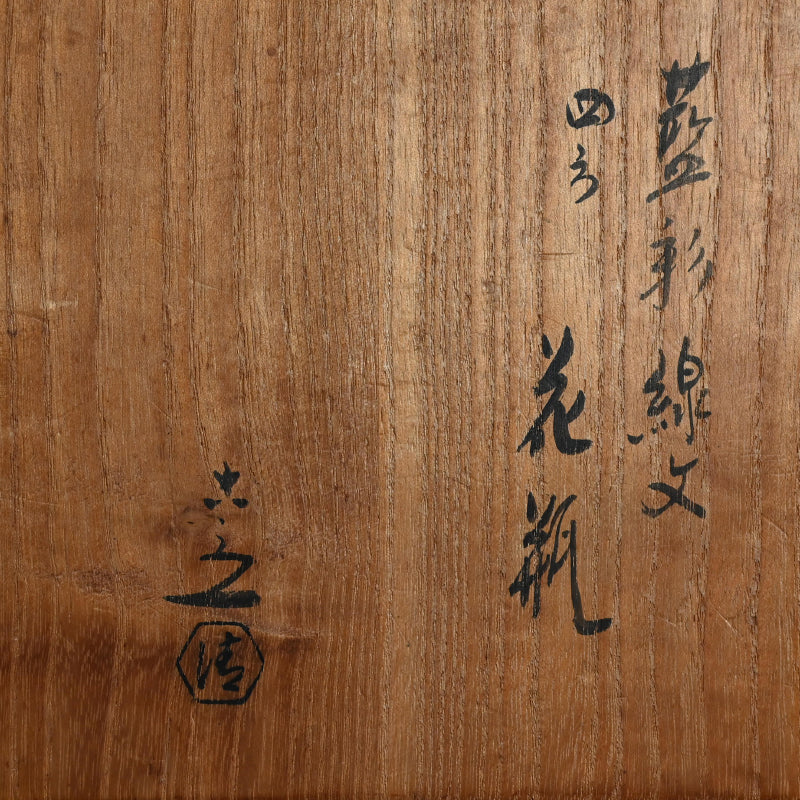 藍彩線文
四方
花瓶
忠之
清